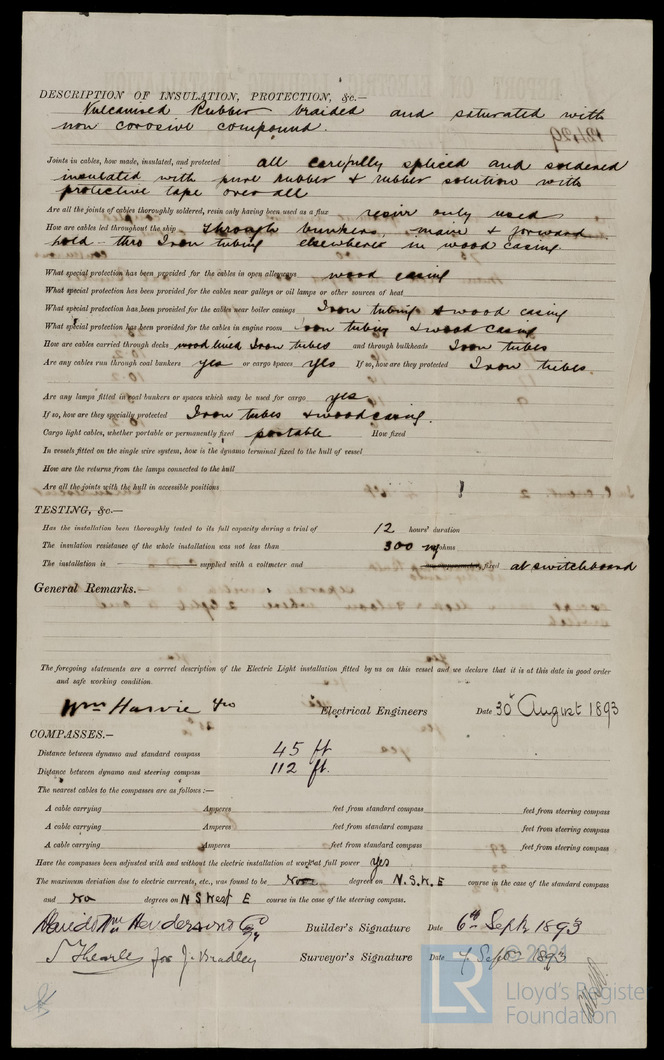 DESCRIPTION OF INSULATION, PROTECTION, &c.—
Vulcanised Rubber braided and saturated with
non corosive compound.
Joints in cables, how made, insulated, and protected all carefully spliced and soldered
insulated with pure rubber & rubber solution with
protective tape over all
Are all the joints of cables thoroughly soldered, resin only having been used as a flux resin only used
How are cables led throughout the ship through bunkers, main & forward
hold - thro Iron tubing elsewhere in wood casing.
What special protection has been provided for the cables in open alleyways wood casing
What special protection has been provided for the cables near galleys or oil lamps or other sources of heat
What special protection has been provided for the cables near boiler casings Iron tubing & wood casing
What special protection has been provided for the cables in engine room Iron tubing & wood casing
How are cables carried through decks wood lined Iron tubes and through bulkheads Iron tubes
Are any cables run through coal bunkers yes or cargo spaces yes If so, how are they protected Iron tubes.
Are any lamps fitted in coal bunkers or spaces which may be used for cargo yes
If so, how are they specially protected Iron tubes & wood casing.
Cargo light cables, whether portable or permanently fixed portable How fixed
In vessels fitted on the single wire system, how is the dynamo terminal fixed to the hull of vessel
How are the returns from the lamps connected to the hull
Are all the joints with the hull in accessible positions
TESTING, &c.—
Has the installation been thoroughly tested to its full capacity during a trial of 12 hours' duration
The insulation resistance of the whole installation was not less than 300 ohms
The installation is supplied with a voltmeter and fixed at switchboard
General Remarks.—
The foregoing statements are a correct description of the Electric Light installation fitted by us on this vessel and we declare that it is at this date in good order
and safe working condition.
Wm Harvie & Co Electrical Engineers Date 30 August 1893
COMPASSES.—
Distance between dynamo and standard compass 45 ft
Distance between dynamo and steering compass 112 ft.
The nearest cables to the compasses are as follows :—
A cable carrying Amperes feet from standard compass feet from steering compass
A cable carrying Amperes feet from standard compass feet from steering compass
A cable carrying Amperes feet from standard compass feet from steering compass
Have the compasses been adjusted with and without the electric installation at work at full power yes
The maximum deviation due to electric currents, etc., was found to be degrees on N.S.W.E course in the case of the standard compass
and No degrees on N S West E course in the case of the steering compass.
David Wm Henderson & Co Builder's Signature Date 6th Septr 1893
for J. Bradley Surveyor's Signature Date Sept 1893
© 2021
LR
Lloyd's Register
Foundation